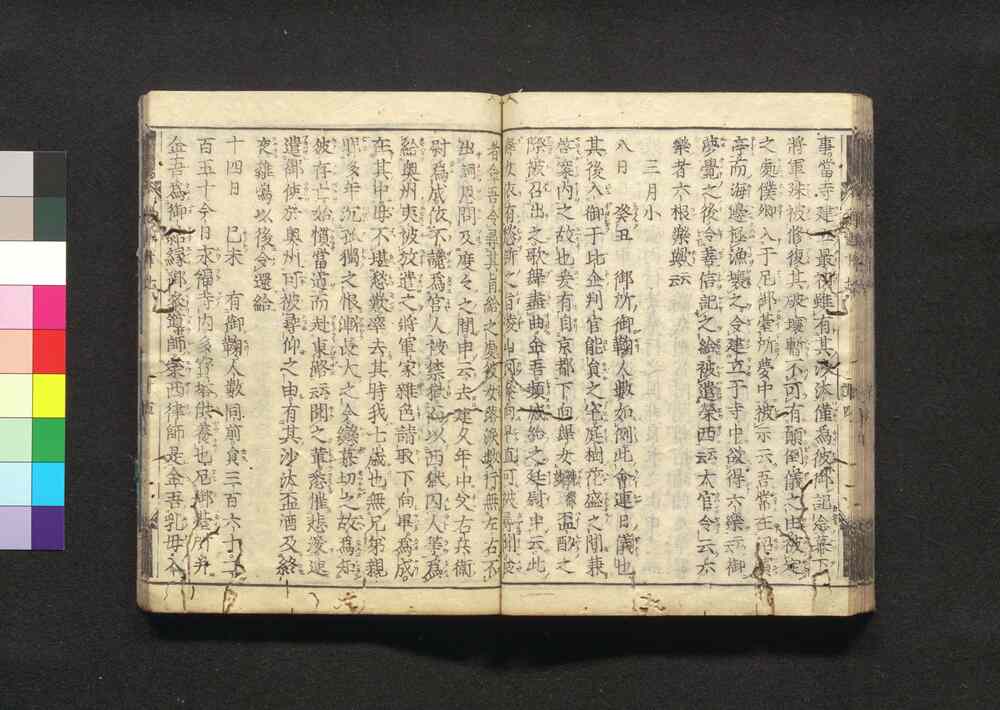 事當寺建立最初雖有其沙汰僅爲彼御記念幕下
將軍殊被修復其破壞暫不可有顛倒儀之由被定
之處僕卿入于尼御臺所夢中被示云吾常在
亭而海邊極漁 之令建立于寺中 得六樂云御
夢覺之後令善信記之給被遣榮西云大官令云六
樂者六根樂與云
三月小
八日 癸丑 御所御鞠人數如例此會連日儀也
其後入御于比企判官能員之宅庭樹花盛之間兼
啓案內之故也爰有自京都下向舞女 盃酌之
際被召出之歌舞盡曲金吾頻感給之廷尉申云此
舞女依有愁訴之旨凌山河參向早直可被 聞食
者金吾令尋其旨給之處彼女落淚數行無左右不
出詞恩問及度々之間申云去建久年中父右兵衛
尉爲成依不 爲官人被禁獄而以西獄囚人等爲
給奧州夷被放遣之將軍家雜色請取下向畢爲成
在其中母不堪愁歎卒去其時我七歲也無兄弟親
昵多年沉孤獨之恨漸長大之今 慕切之故爲知
彼存亡始慣當道而赴東路云聞之輩悉催悲淚速
遣御使於奧州可被尋仰之由有其沙汰盃酒及終
夜雞鳴以後令還給
十四日 己未 有御鞠人數同前員三百六十 二
百五十今日永福寺內多寶塔供養也尼御臺所并
金吾爲御結緣御參導師榮西律師是金吾乳母入